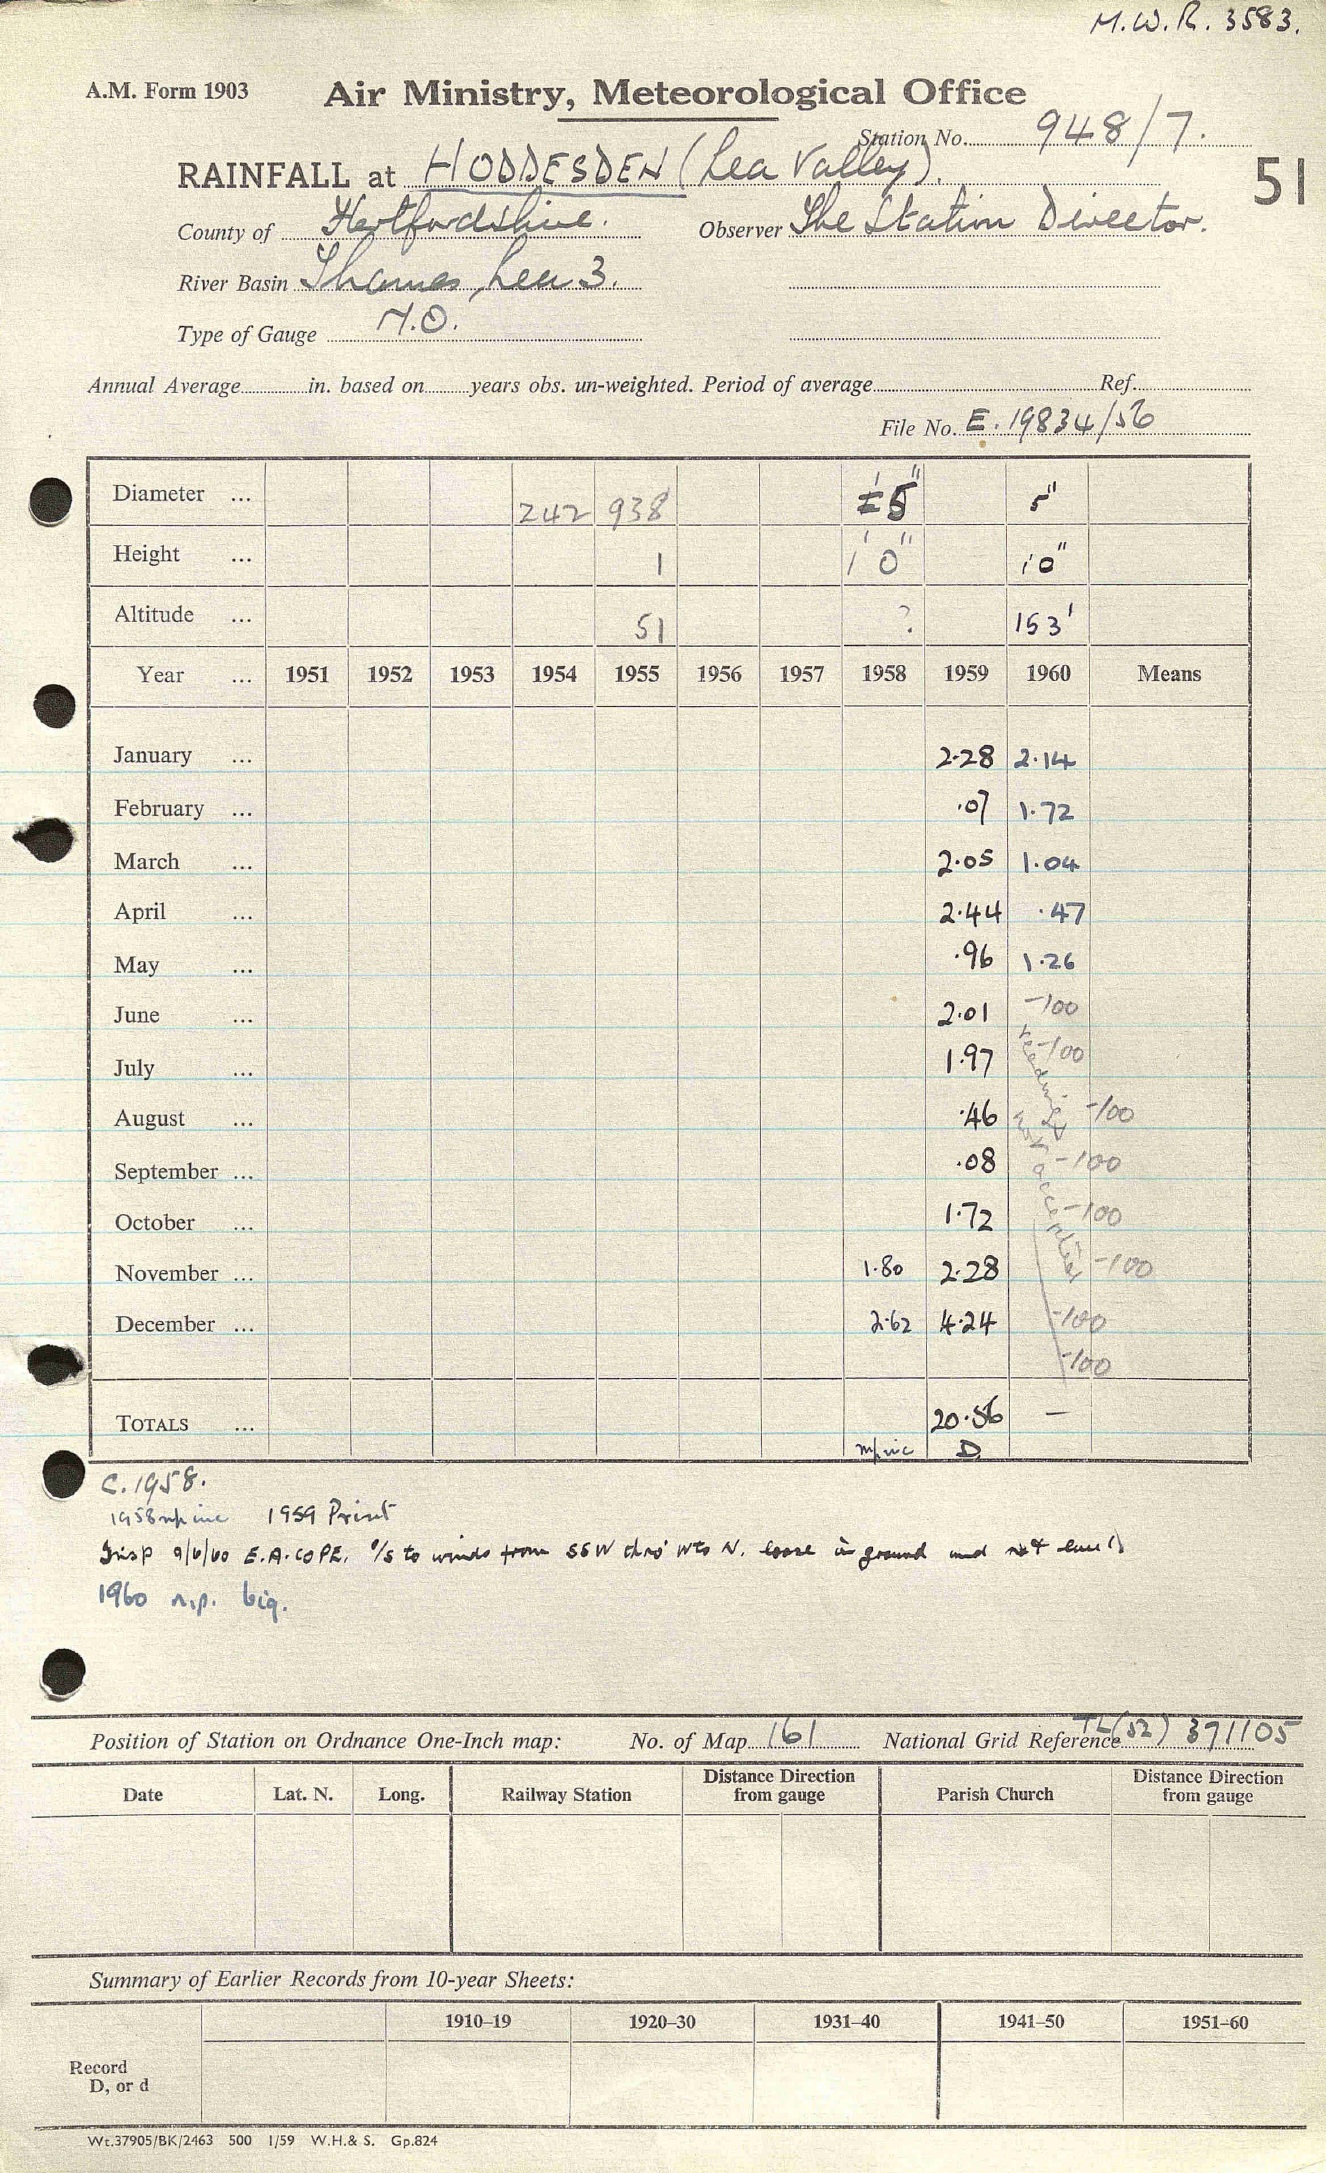 M.W.R. 3583.
A.M. Form 1903 Air Ministry, Meteorological Office
Station No. 948/7.
RAINFALL at HODDESDEN (Lea Valley). 51
County of Hertfordshire. Observer The Station Director.
River Basin Thames, Lea 3.
Type of Gauge M.O.
Annual Average in. based on years obs. un-weighted. Period of average Ref.
File No. E. 19834/56
Diameter ... 242 938 5" 5"
Height ... 1 1' 0" 1' 0"
Altitude ... 51 ? 153'
Year ... 1951 1952 1953 1954 1955 1956 1957 1958 1959 1960 Means
January ... 2.28 2.14
February ... .07 1.72
March ... 2.05 1.04
April ... .47 2.44
May ... .96 1.26
June ... 2.01 -100
July ... 1.97 -100
August ... .46 -100
September ... .08 -100
October ... 1.72 -100
November ... 1.80 2.28 -100
December ... 2.62 4.24 -100
-100
readings not accepted
TOTALS ... 20.56 —
inc D
C. 1958.
1958 inc 1959 Print
Insp 9/6/60 E.A. COPE. o/s to winds from SSW thro' W to N. loose in ground and not level
1960 n.p. big.
Position of Station on Ordnance One-Inch map: No. of Map 161 National Grid Reference TL(52) 371105
Date Lat. N. Long. Railway Station Distance Direction from gauge Parish Church Distance Direction from gauge
Summary of Earlier Records from 10-year Sheets:
1910–19 1920–30 1931–40 1941–50 1951–60
Record
D, or d
Wt.37905/BK/2463 500 1/59 W.H.& S. Gp.824